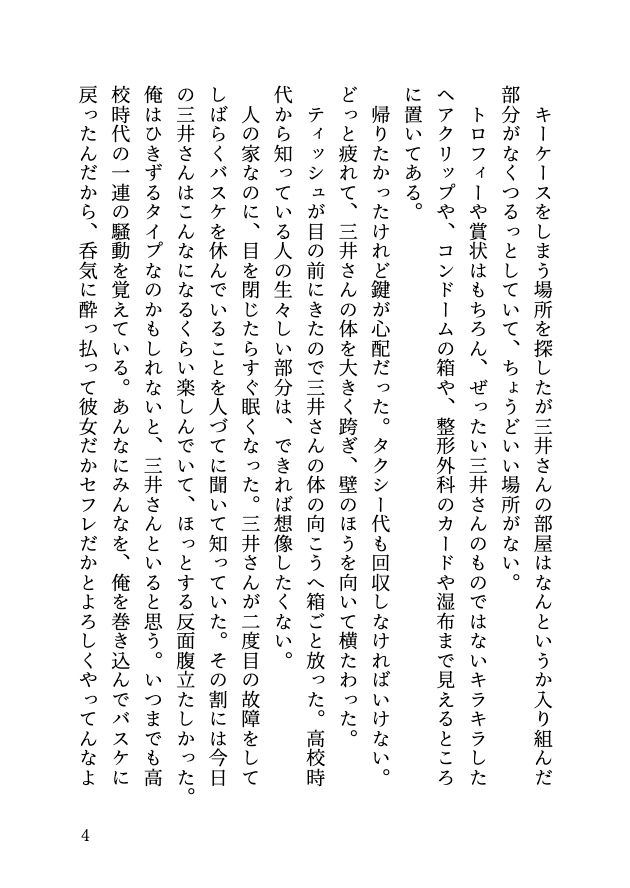 キーケースをしまう場所を探したが三井さんの部屋はなんというか入り組んだ
部分がなくつるっとしていて、ちょうどいい場所がない。
トロフィーや賞状はもちろん、ぜったい三井さんのものではないキラキラした
ヘアクリップや、コンドームの箱や、整形外科のカードや湿布まで見えるところ
に置いてある。
帰りたかったけれど鍵が心配だった。タクシー代も回収しなければいけない。
どっと疲れて、三井さんの体を大きく跨ぎ、壁のほうを向いて横たわった。
ティッシュが目の前にきたので三井さんの体の向こうへ箱ごと放った。高校時
代から知っている人の生々しい部分は、できれば想像したくない。
人の家なのに、目を閉じたらすぐ眠くなった。三井さんが二度目の故障をして
しばらくバスケを休んでいることを人づてに聞いて知っていた。その割には今日
の三井さんはこんなになるくらい楽しんでいて、ほっとする反面腹立たしかった。
俺はひきずるタイプなのかもしれないと、三井さんといると思う。いつまでも高
校時代の一連の騒動を覚えている。あんなにみんなを、俺を巻き込んでバスケに
戻ったんだから、呑気に酔っ払って彼女だかセフレだかとよろしくやってんなよ
4